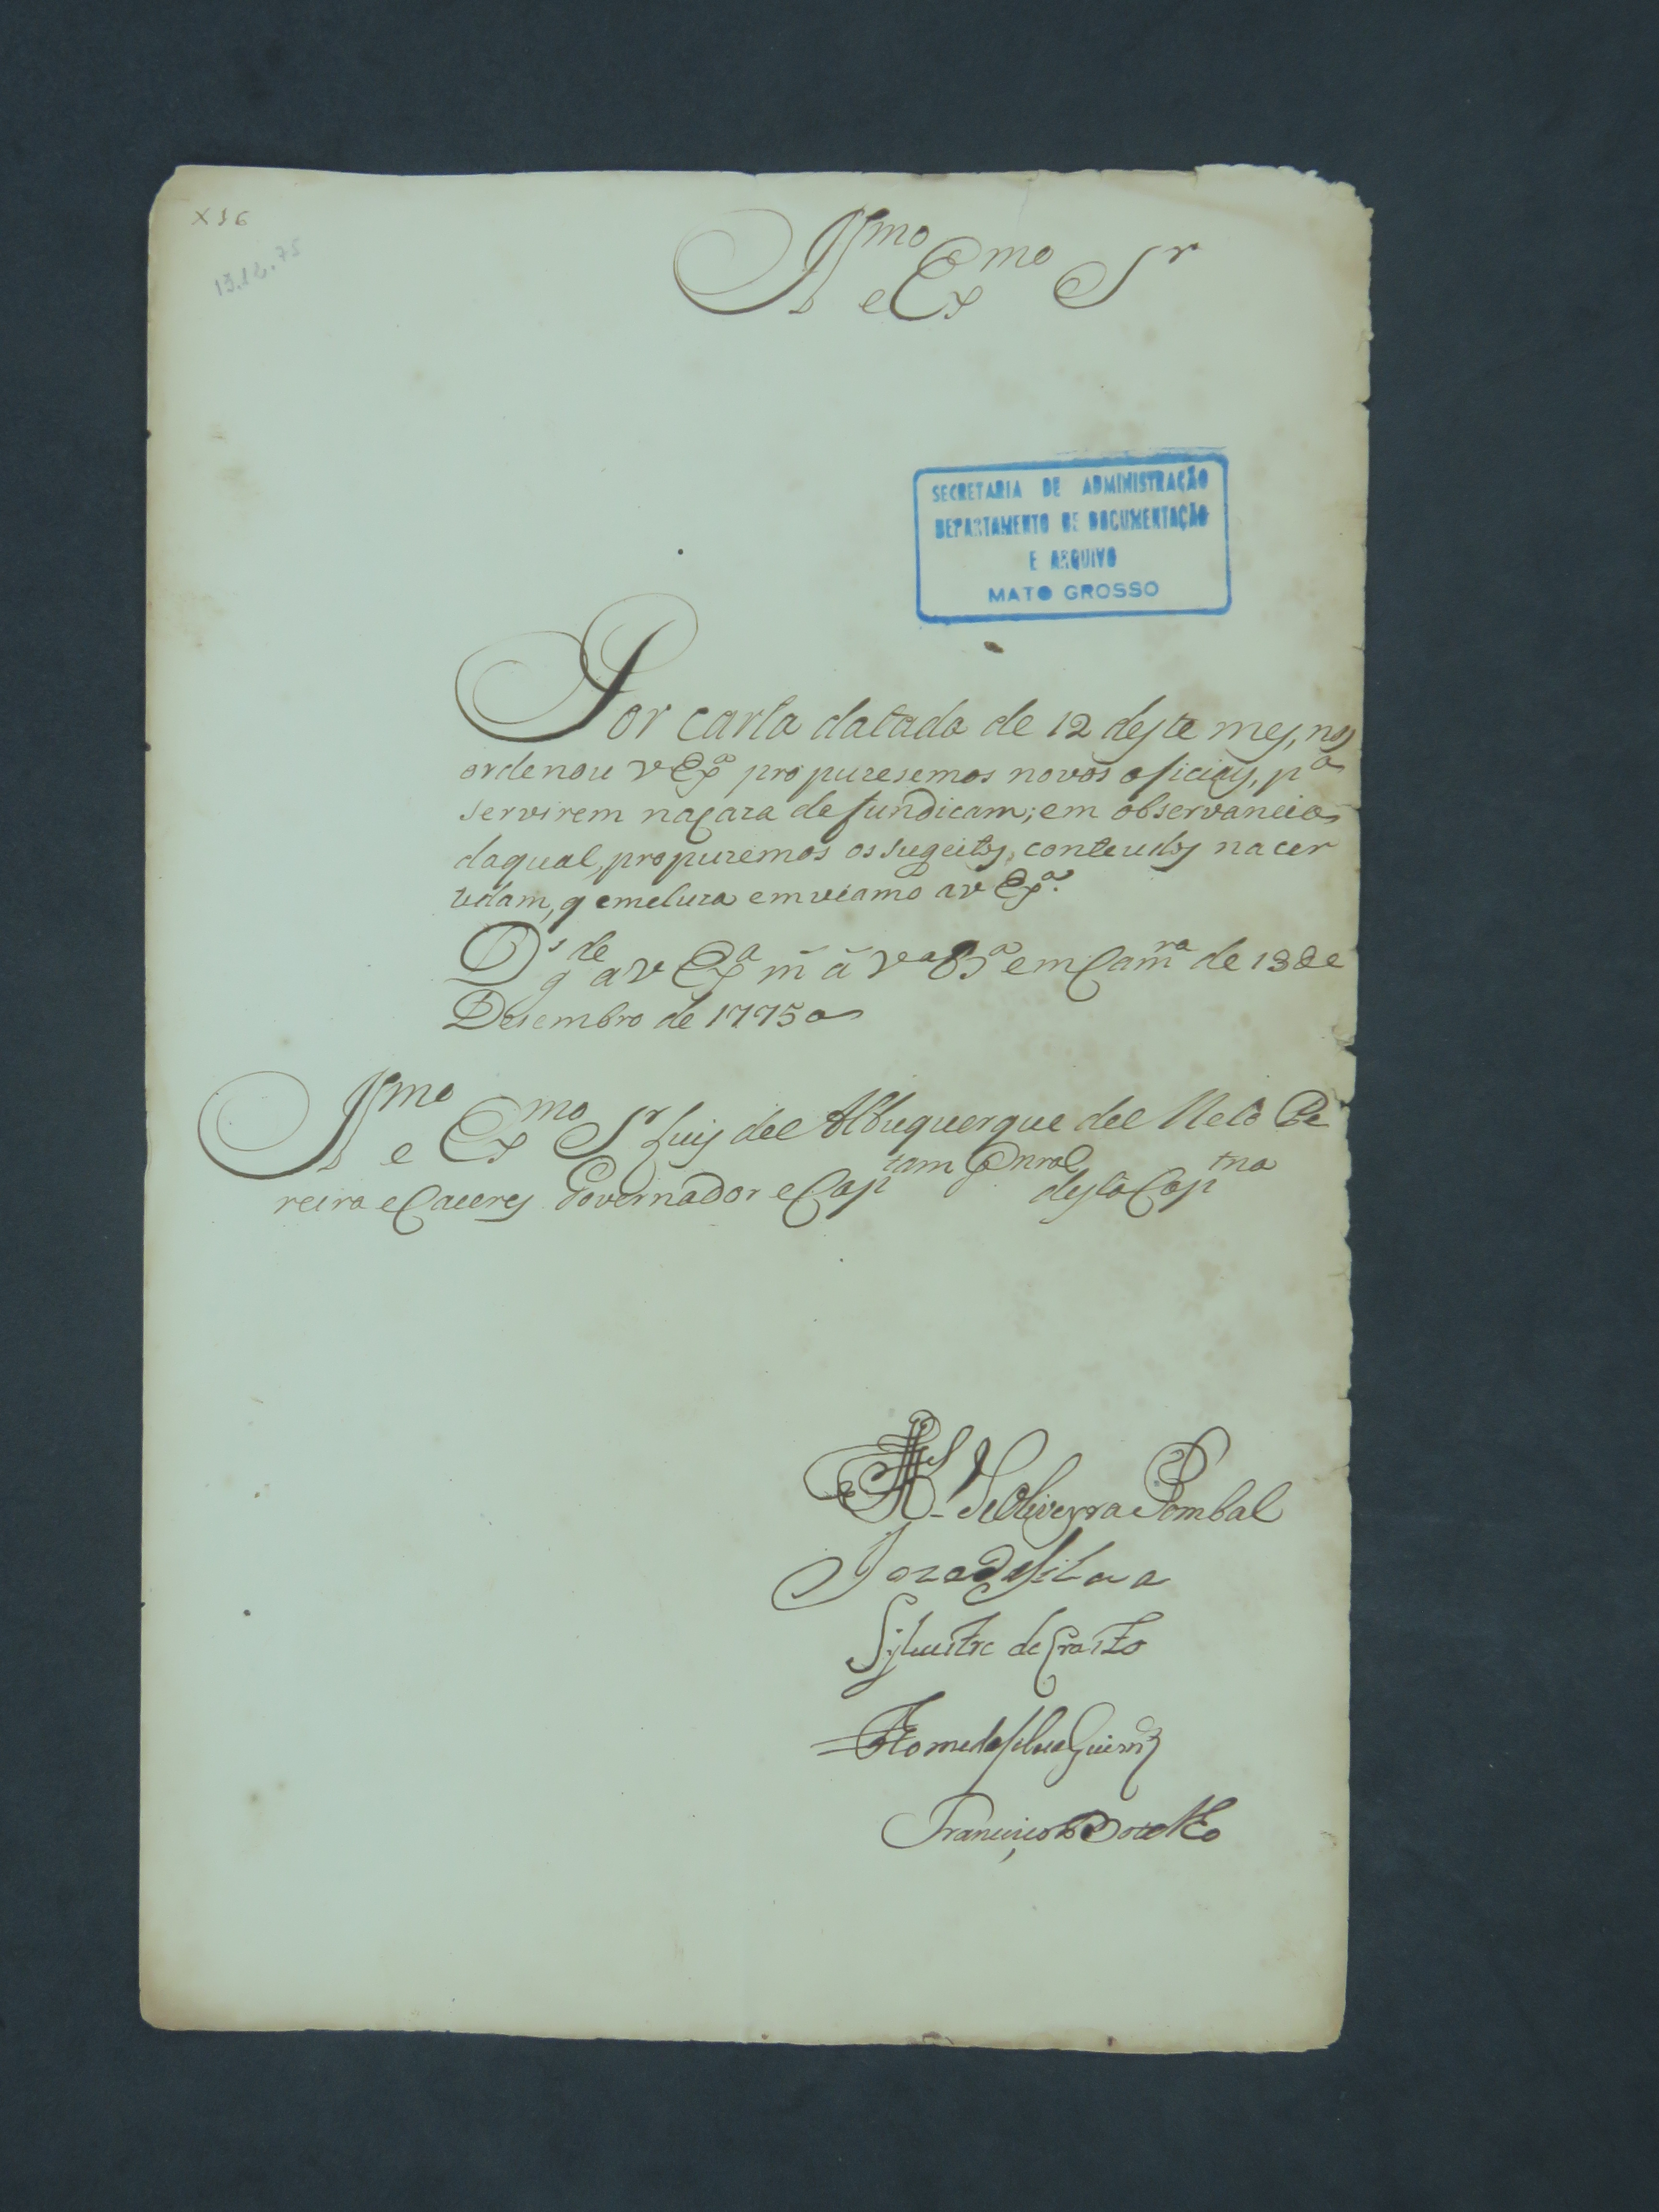 X 16
13.12.75
Illmo e Exmo Sr
SECRETARIA DE ADMINISTRAÇÃO
DEPARTAMENTO DE DOCUMENTAÇÃO
E ARQUIVO
MATO GROSSO
Por carta datada de 12 deste mes, nos
ordenou v Exa propuzesemos novos oficiays, pa
servirem na caza de fundicam; em observancia
da qual, propuzemos os sugeitos, conteudos na cer
tidam, q emcluza emviamo a v Exa.
Ds gde a v Exa m a va Ba em Camra de 13 de
Desembro de 1775 a
Illmo e Exmo Sr Luis del Albuquerque del Melo Pe
reira e Caceres Governador e Captam Gnral desta Captna
de Oliveyra Pombal
Joze da Silva
Sylvestre de Crasto
Thome da Silva Guimz
Francisco Botelho